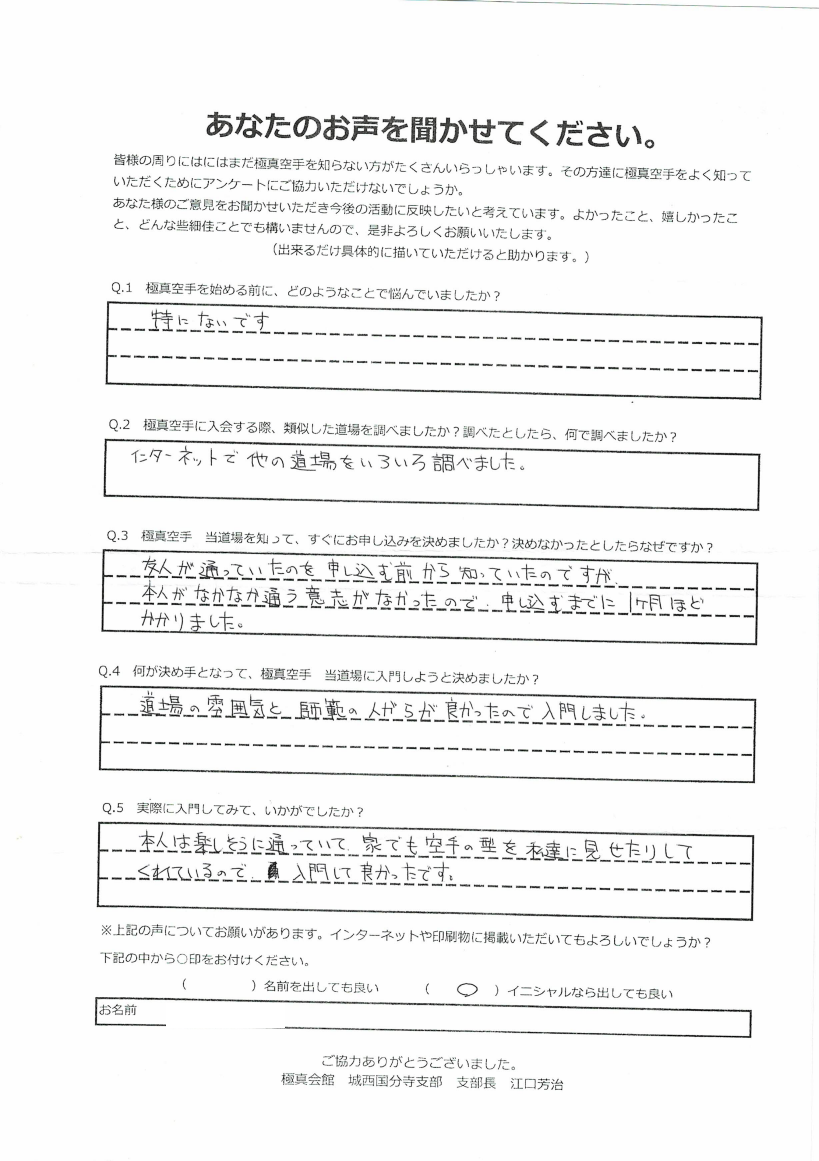 あなたのお声を聞かせてください。
皆様の周りにはにはまだ極真空手を知らない方がたくさんいらっしゃいます。その方達に極真空手をよく知って
いただくためにアンケートにご協力いただけないでしょうか。
あなた様のご意見をお聞かせいただき今後の活動に反映したいと考えています。よかったこと、嬉しかったこ
と、どんな些細佳ことでも構いませんので、是非よろしくお願いいたします。
(出来るだけ具体的に描いていただけると助かります。)
Q.1 極真空手を始める前に、どのようなことで悩んでいましたか?
特にないです
Q.2 極真空手に入会する際、類似した道場を調べましたか?調べたとしたら、何で調べましたか?
インターネットで他の道場をいろいろ調べました。
Q.3 極真空手 当道場を知って、すぐにお申し込みを決めましたか?決めなかったとしたらなぜですか?
友人が通っていたのを申し込む前から知っていたのですが、
本人がなかなか通う意志がなかったので、申し込むまでに1ヶ月ほど
かかりました。
Q.4 何が決め手となって、極真空手 当道場に入門しようと決めましたか?
道場の雰囲気と師範の人がらが良かったので入門しました。
Q.5 実際に入門してみて、いかがでしたか?
本人は楽しそうに通っていて、家でも空手の型を私達に見せたりして
くれているので、入門して良かったです。
※上記の声についてお願いがあります。インターネットや印刷物に掲載いただいてもよろしいでしょうか?
下記の中から○印をお付けください。
( )名前を出しても良い (○)イニシャルなら出しても良い
お名前
ご協力ありがとうございました。
極真会館 城西国分寺支部 支部長 江口芳治